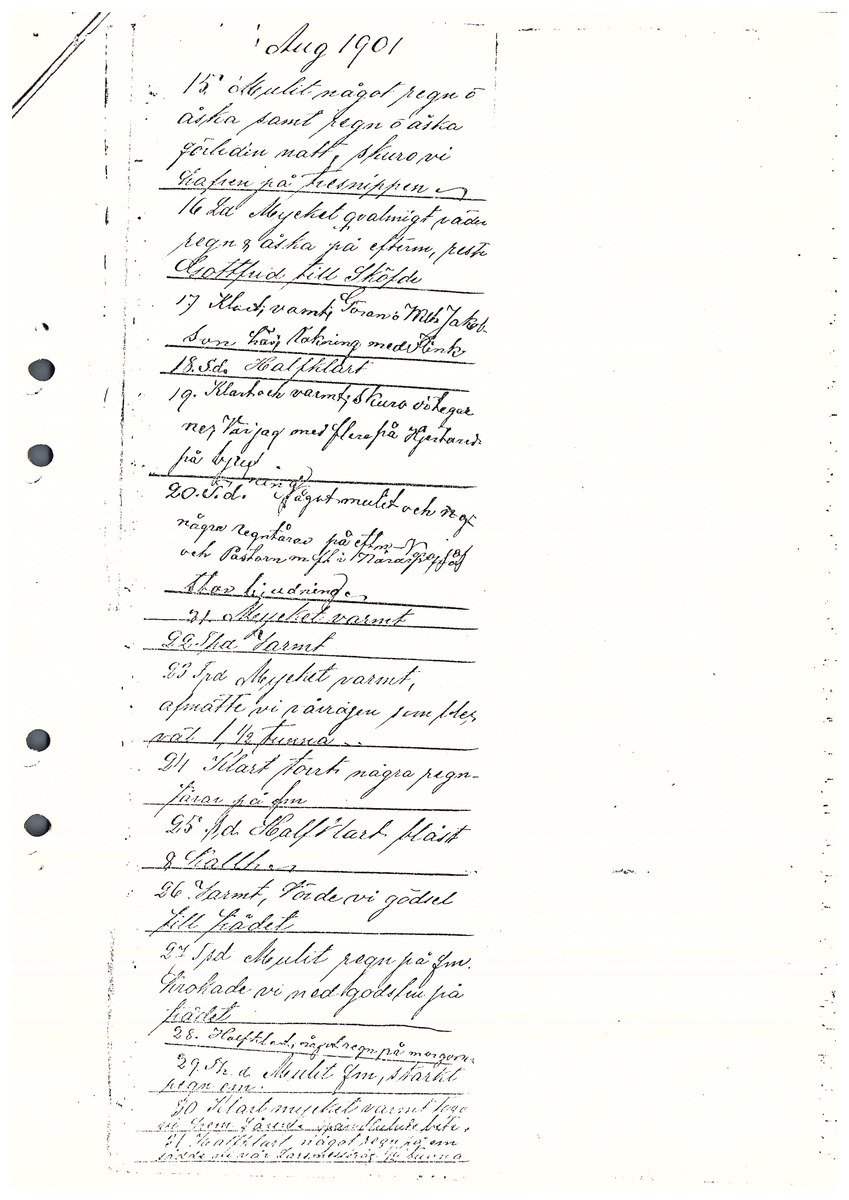 Aug 1901
15. Mulit något regn o
åska samt regn o åska
förliden natt, skuro vi
hafren på
16 Ld Mycket qvalmigt väder
regn & åska på efterm, reste
Gottfrid till Sköfde
17 Klart, varmt, Göran o Jakob-
son här,
18. Sd. Halfklart
19. Klart och varmt, skuro vi
Var jag med flere på
på
20. Något mulit och
några regntårar på efm
och Pastorn m fl i
stor bjudning
21. Mycket varmt
22 Varmt
23 Mycket varmt,
afmätte vi vårrågen som blef
väl 1 1/2 tunna
24 Klart torrt några regn-
tårar på fm
25 Halfklart blåst
& kallt
26 Varmt, körde vi gödsel
till trädet
27 Mulit regn på fm.
krokade vi ned gödseln på
trädet
28. Halfklart, något regn på morgonen
29. Mulit fm, starkt
regn em.
30 Klart mycket varmt
vi hem
31 Halfklart, något regn på em
tunna